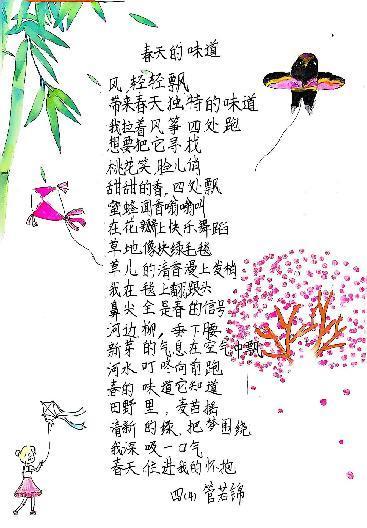 春天的味道
风轻轻飘
带来春天独特的味道
我拉着风筝四处跑
想要把它寻找
桃花笑,脸儿俏
甜甜的香,四处飘
蜜蜂闻香嗡嗡叫
在花瓣上快乐舞蹈
草地像块绿毛毯
草儿的清香漫上发梢
我在毯上翻跟头
鼻尖全是春的信号
河边柳,垂下腰
新芽的气息在空气中飘
河水叮咚向前跑
春的味道它知道
田野里,麦苗摇
清新的绿,把梦围绕
我深吸一口气
春天住进我的怀抱
四(4) 管若